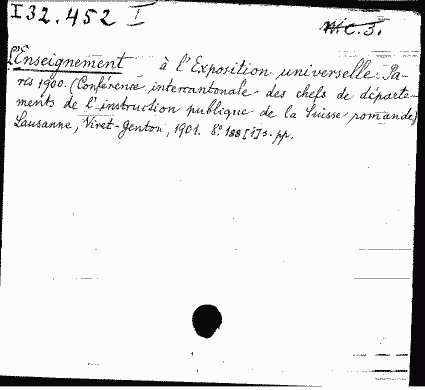 I 32.452 I
L'Enseignement à l'Exposition universelle. Pa-
ris 1900. (Conférence intercantonale des chefs de départe-
ments de l'instruction publique de la Suisse romande)
Lausanne, Viret-Genton, 1901. 8° 188 [1] s. pp.